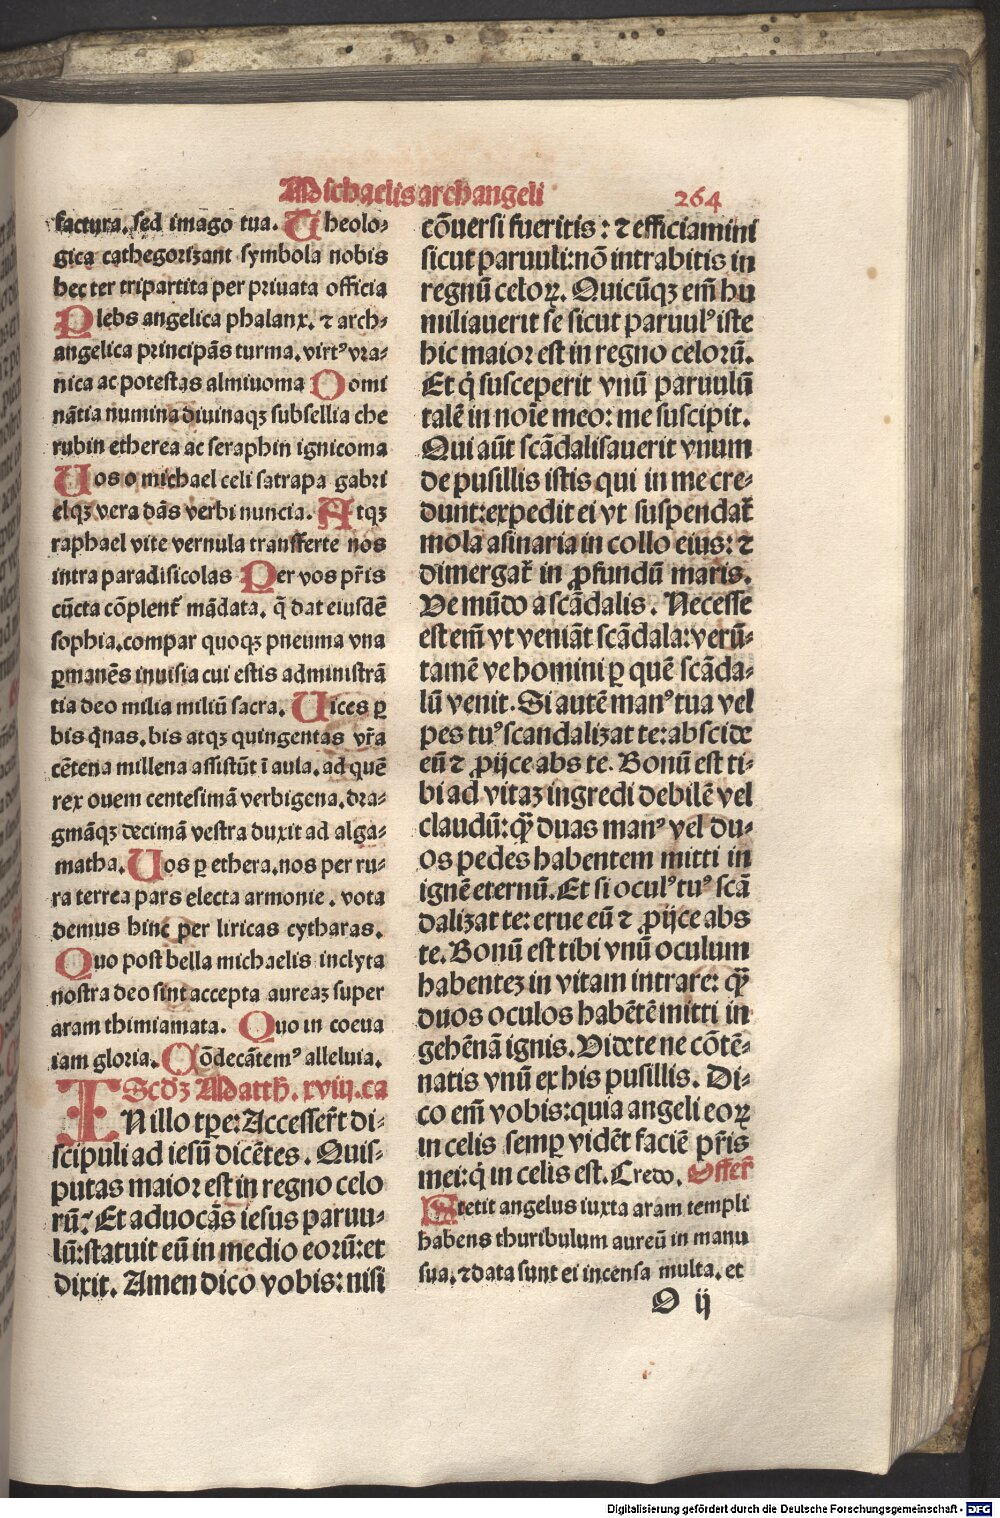 Michaelis archangeli 264
factura. sed imago tua. Theolo⸗
gica cathegorizant symbola nobis
hec ter tripartita per priuata officia
Plebs angelica phalanx. ⁊ arch⸗
angelica principãs turma. virtꝰ vra⸗
nica ac potestas almiuoma Domi
nãtia numina diuinaqꝫ subsellia che
rubin etherea ac seraphin ignicoma
Uos o michael celi satrapa gabri
elqꝫ vera dãs verbi nuncia. Atqꝫ
raphael vite vernula transferte nos
intra paradisicolas Per vos pr̃is
cũcta cõplent᷑ mãdata. q̃ dat eiusdẽ
sophia. compar quoqꝫ pneuma vna
ꝑmanẽs inuisia cui estis administrã
tia deo milia miliũ sacra. Uices ꝑ
bis q̇nas. bis atqꝫ quingentas vr̃a
cẽtena millena assistũt ĩ aula. ad quẽ
rex ouem centesimã verbigena. dra⸗
gmãqꝫ decimã vestra duxit ad alga⸗
matha. Uos ꝑ ethera. nos per ru⸗
ra terrea pars electa armonie. vota
demus hinc per liricas cytharas.
Quo post bella michaelis inclyta
nostra deo sint accepta aureaꝫ super
aram thimiamata. Quo in coeua
iam gloria. Cõdecãtemꝰ alleluia.
Scd̃ꝫ Matth̃. xviij. ca
IN illo tꝑe: Accesser̃t di⸗
scipuli ad iesũ dicẽtes. Quis⸗
putas maior est in regno celo
rũ? Et aduocãs iesus paruu⸗
lũ: statuit eũ in medio eorũ: et
dixit. Amen dico vobis: nisi
cõuersi fueritis: ⁊ efficiamini
sicut paruuli: nõ intrabitis in
regnũ celoꝝ. Quicũqꝫ em̃ hu
miliauerit se sicut paruulꝰ iste
hic maior est in regno celorũ.
Et q̇ susceperit vnũ paruulũ
talẽ in noĩe meo: me suscipit.
Qui aũt scãdalisauerit vnum
de pusillis istis qui in me cre⸗
dunt: expedit ei vt suspendat᷑
mola asinaria in collo eius: ⁊
dimergat᷑ in ꝓfundũ maris.
Ve mũdo a scãdalis. Necesse
est em̃ vt veniãt scãdala: verũ⸗
tamẽ ve homini ꝑ quẽ scãda⸗
lũ venit. Si autẽ manꝰ tua vel
pes tuꝰ scandalizat te: abscide
eũ ⁊ ꝓijce abs te. Bonũ est ti⸗
bi ad vitaꝫ ingredi debilẽ vel
claudũ: qꝙ̃ duas manꝰ vel du⸗
os pedes habentem mitti in
ignẽ eternũ. Et si oculꝰ tuꝰ scã
dalizat te: erue eũ ⁊ ꝓijce abs
te. Bonũ est tibi vnũ oculum
habenteꝫ in vitam intrare: qꝙ̃
duos oculos habẽtẽ mitti in
gehẽnã ignis. Videte ne cõtẽ⸗
natis vnũ ex his pusillis. Di⸗
co em̃ vobis: quia angeli eoꝝ
in celis semꝑ vidẽt faciẽ pr̃is
mei: q̇ in celis est. Credo. Offer̃
Stetit angelus iuxta aram templi
habens thuribulum aureũ in manu
sua. ⁊ data sunt ei incensa multa. et
O ij
Digitalisierung gefördert durch die Deutsche Forschungsgemeinschaft - DFG